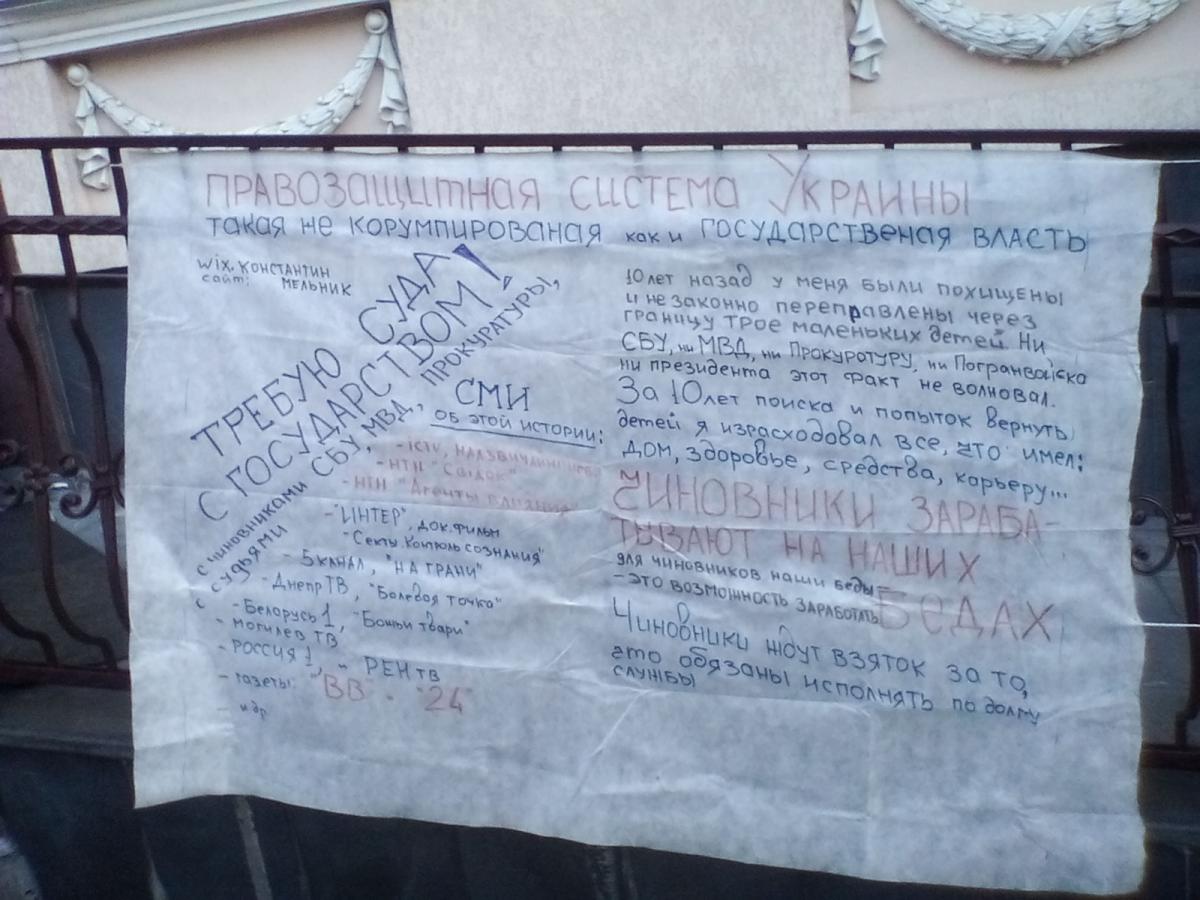 ПРАВОЗАЩИТНАЯ СИСТЕМА УКРАИНЫ
ТАКАЯ НЕ КОРУМПИРОВАНАЯ КАК И ГОСУДАРСТВЕНАЯ ВЛАСТЬ
WIX. КОНСТАНТИН
САЙТ: МЕЛЬНИК
ТРЕБУЮ СУДА
С ГОСУДАРСТВОМ!
С ЧИНОВНИКАМИ СБУ, МВД, ПРОКУРАТУРЫ,
С СУДЬЯМИ
СМИ
ОБ ЭТОЙ ИСТОРИИ:
- ICTV, НАДЗВИЧАЙНІ
- НТН "Свідок"
- НТН "Агенты влияния"
- "ИНТЕР", док.фильм
"Секты. Контроль сознания"
- 5 КАНАЛ, "НА ГРАНИ"
- Днепр ТВ, "Болевая точка"
- Белорусь 1, "Божьи твари"
- МОГИЛЕВ ТВ
- РОССИЯ 1, - РЕН ТВ
- газеты: "ВВ". "24"
- и др.
10 лет назад у меня были похищены
и не законно переправлены через
границу трое маленьких детей. Ни
СБУ, ни МВД, ни Прокуротуру, ни Погранвойска
ни президента этот факт не волновал.
За 10 лет поиска и попыток вернуть
детей я израсходовал все, что имел:
дом, здоровье, средства, карьеру...
ЧИНОВНИКИ ЗАРАБА-
ТЫВАЮТ НА НАШИХ
для чиновников наши беды
- ЭТО ВОЗМОЖНОСТЬ ЗАРАБОТАТЬ БЕДАХ
Чиновники ждут взяток за то,
что обязаны исполнять по долгу
службы